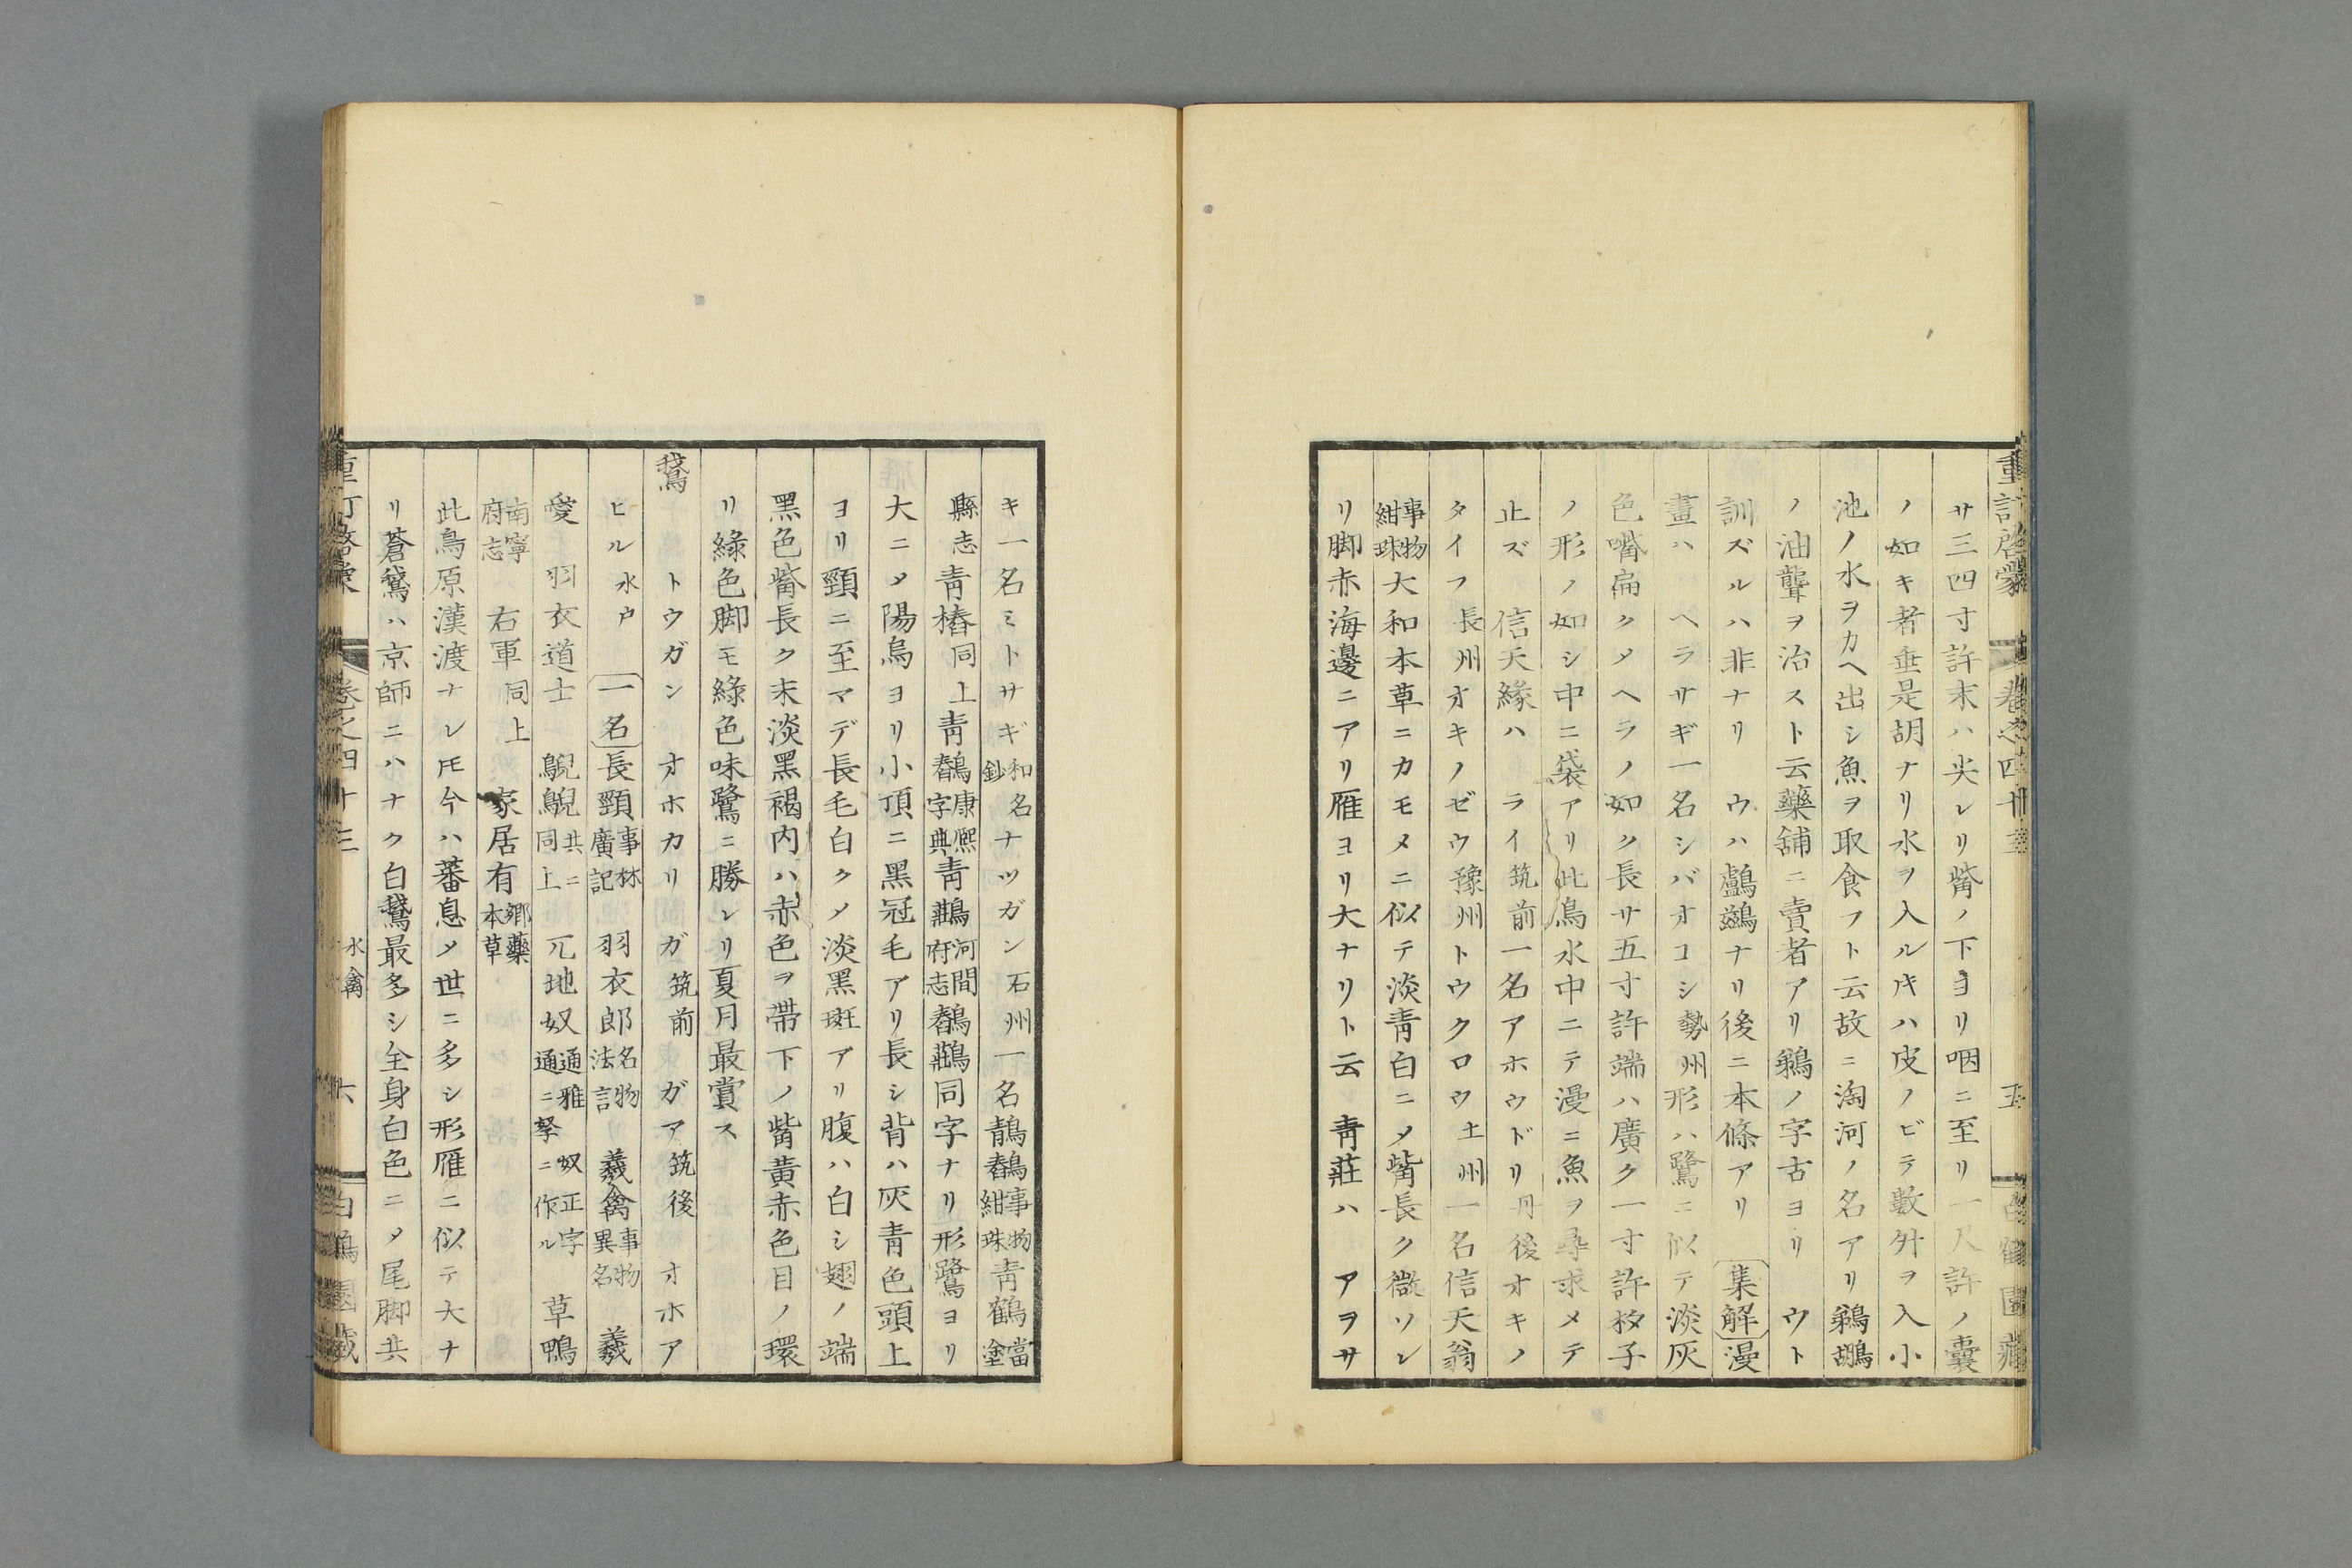 重訂啓蒙 卷之四十三 五 白鶴園藏
サ三四寸許末ハ尖レリ觜ノ下ヨリ咽ニ至リ一尺許ノ囊
ノ如キ者垂是胡ナリ水ヲ入ルキハ皮ノビテ數升ヲ入小
池ノ水ヲカヘ出シ魚ヲ取食フト云故ニ淘河ノ名アリ鵜鶘
ノ油聾ヲ治スト云藥舗ニ賣者アリ鵜ノ字古ヨリ ウト
訓ズルハ非ナリ ウハ鸕鷀ナリ後ニ本條アリ 集解漫
畫ハ ヘラサギ一名シバオコシ勢州形ハ鷺ニ似テ淡灰
色嘴扁クメヘラノ如ク長サ五寸許端ハ廣ク一寸許杉子
ノ形ノ如シ中ニ袋アリ此鳥水中ニテ漫ニ魚ヲ尋求メテ
止ズ 信天緣ハ ライ筑前一名アホウドリ丹後オキノ
タイフ長州オキノゼウ豫州トウクロウ土州一名信天翁
事物紺珠大和本草ニカモメニ似テ淡靑白ニメ觜長ク微ソレ
リ脚赤海邊ニアリ雁ヨリ大ナリト云 靑莊ハ アヲサ
キ一名ミトサギ和名鈔ナツガン石州一名鶄鶴事物紺珠靑鶴當塗
縣志靑樁同上靑鶴康熙字典靑鶄河間府志鶴鶄同字ナリ形鷺ヨリ
大ニメ陽烏ヨリ小頂ニ黑冠毛アリ長シ背ハ灰靑色頭上
ヨリ頸ニ至マデ長毛白クメ淡黑斑アリ腹ハ白シ翅ノ端
黑色觜長ク末淡黑褐內ハ赤色ヲ帶下ノ觜黃赤色目ノ環
リ綠色脚モ綠色味鷺ニ勝レリ夏月最賞ス
鵞 トウガン オホカリ ガ筑前 ガア筑後 オホア
ヒル水戸 一名長頸事林廣記 羽衣郎名物法言 羲禽事物異名 羲
愛 羽衣道士 鶃鶃共ニ同上 兀地奴通雅奴正字通ニ拏ニ作ル 草鴨
南寧府志 右軍同上 家居有鄉藥本草
此鳥原漢渡ナレ𪜈今ハ蕃息メ世ニ多シ形雁ニ似テ大ナ
リ蒼鵞ハ京師ニハナク白鵞最多シ全身白色ニメ尾脚共
重訂啓蒙 卷之四十三 水禽 六 白鶴園藏